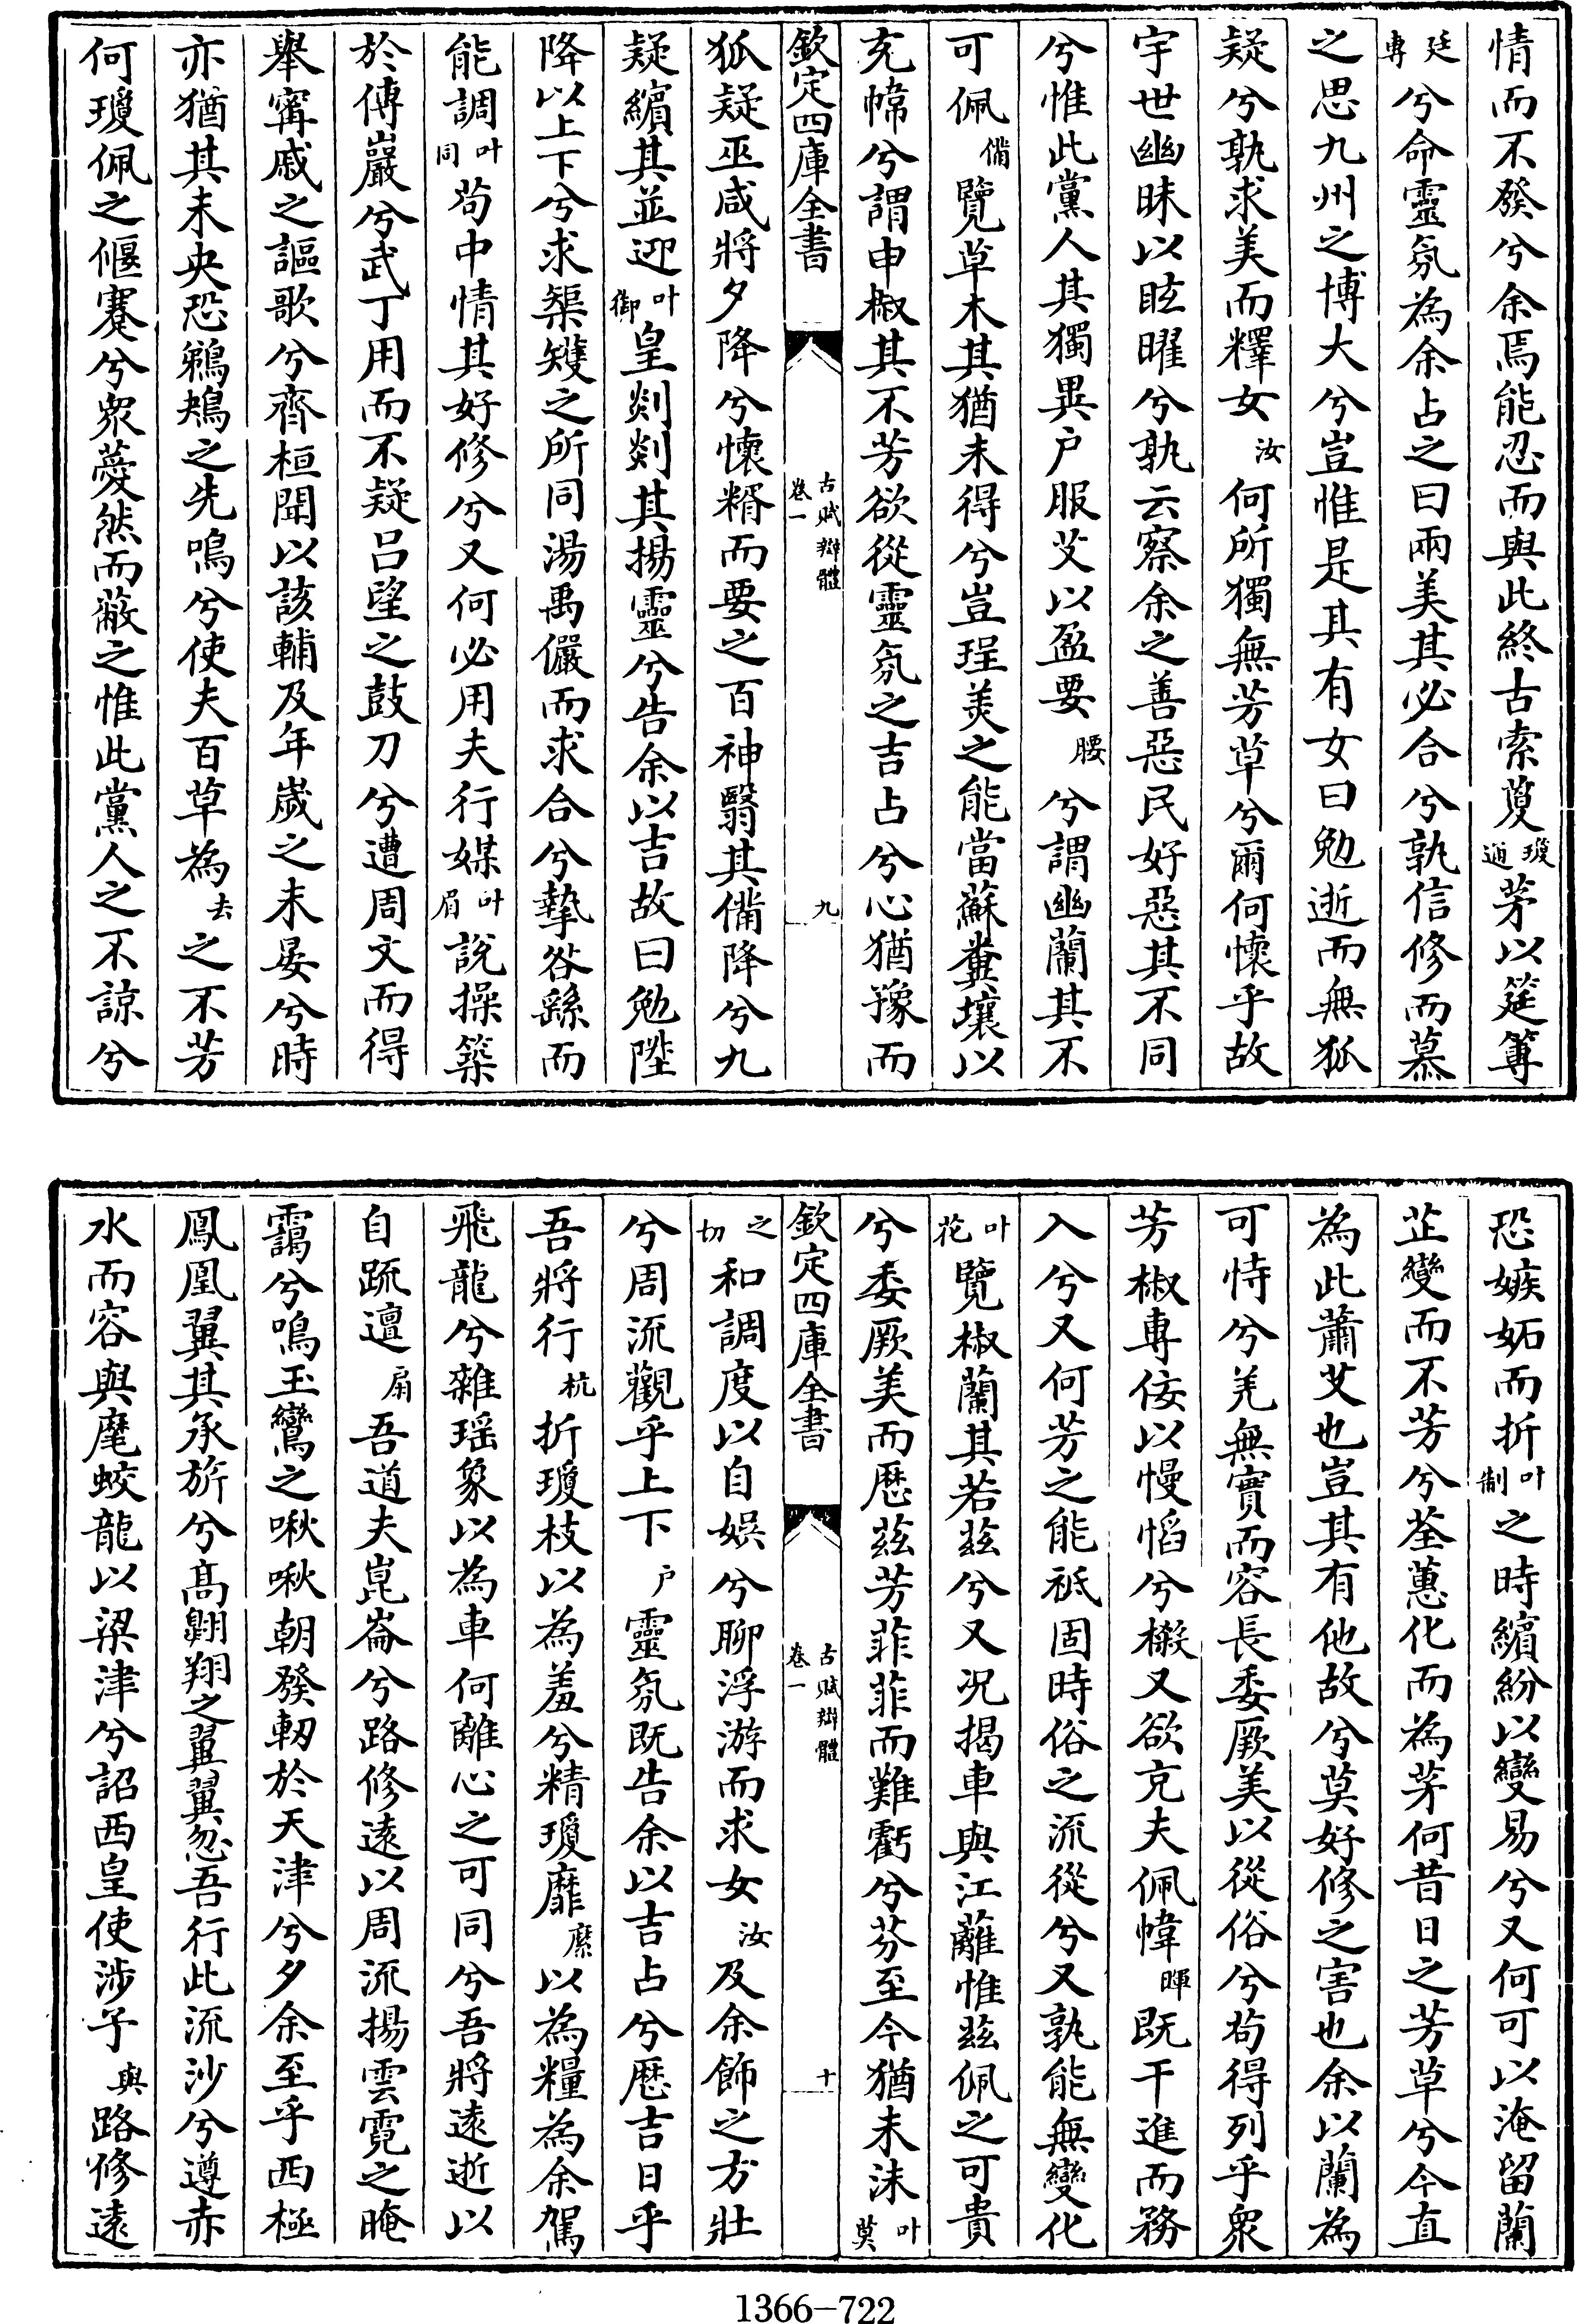 情而不發兮余焉能忍而與此終古索藑瓊通茅以筳篿
廷專兮命靈氛為余占之曰兩美其必合兮孰信修而慕
之思九州之博大兮豈惟是其有女曰勉逝而無狐
疑兮孰求美而釋女汝何所獨無芳草兮爾何懷乎故
宇世幽昧以眩曜兮孰云察余之善惡民好惡其不同
兮惟此黨人其獨異户服艾以盈要腰兮謂幽蘭其不
可佩備覽草木其猶未得兮豈珵美之能當蘇糞壤以
充幃兮謂申椒其不芳欲從靈氛之吉占兮心猶豫而
欽定四庫全書
古賦辯體
卷一
九
狐疑巫咸將夕降兮懷糈而要之百神翳其備降兮九
疑繽其並迎叶御皇剡剡其揚靈兮告余以吉故曰勉陞
降以上下兮求榘矱之所同湯禹儼而求合兮摯咎繇而
能調叶同苟中情其好修兮又何必用夫行媒叶眉說操築
於傅巖兮武丁用而不疑吕望之鼓刀兮遭周文而得
舉甯戚之謳歌兮齊桓聞以該輔及年嵗之未晏兮時
亦猶其未央恐鵜鴂之先鳴兮使夫百草為去之不芳
何瓊佩之偃蹇兮衆薆然而蔽之惟此黨人之不諒兮
恐嫉妬而折叶制之時繽紛以變易兮又何可以淹留蘭
芷變而不芳兮荃蕙化而為茅何昔日之芳草兮今直
為此蕭艾也豈其有他故兮莫好修之害也余以蘭為
可恃兮羌無實而容長委厥美以從俗兮茍得列乎衆
芳椒專佞以慢慆兮樧又欲充夫佩幃暉既干進而務
入兮又何芳之能祗固時俗之流從兮又孰能無變化
叶花覽椒蘭其若兹兮又况揭車與江蘺惟兹佩之可貴
兮委厥美而歴兹芳菲菲而難虧兮芬至今猶未沬叶莫
欽定四庫全書
古賦辯體
卷一
十
之切和調度以自娱兮聊浮游而求女汝及余飾之方壯
兮周流觀乎上下户靈氛既告余以吉占兮歴吉日乎
吾將行杭折瓊枝以為羞兮精瓊爢糜以為糧為余駕
飛龍兮雜瑶象以為車何離心之可同兮吾將遠逝以
自疏邅羶吾道夫崑崙兮路修遠以周流揚雲霓之晻
靄兮鳴玉鸞之啾啾朝發軔於天津兮夕余至乎西極
鳳凰翼其承旂兮髙翺翔之翼翼忽吾行此流沙兮遵赤
水而容與麾蛟龍以梁津兮詔西皇使涉予與路修遠
1366-722